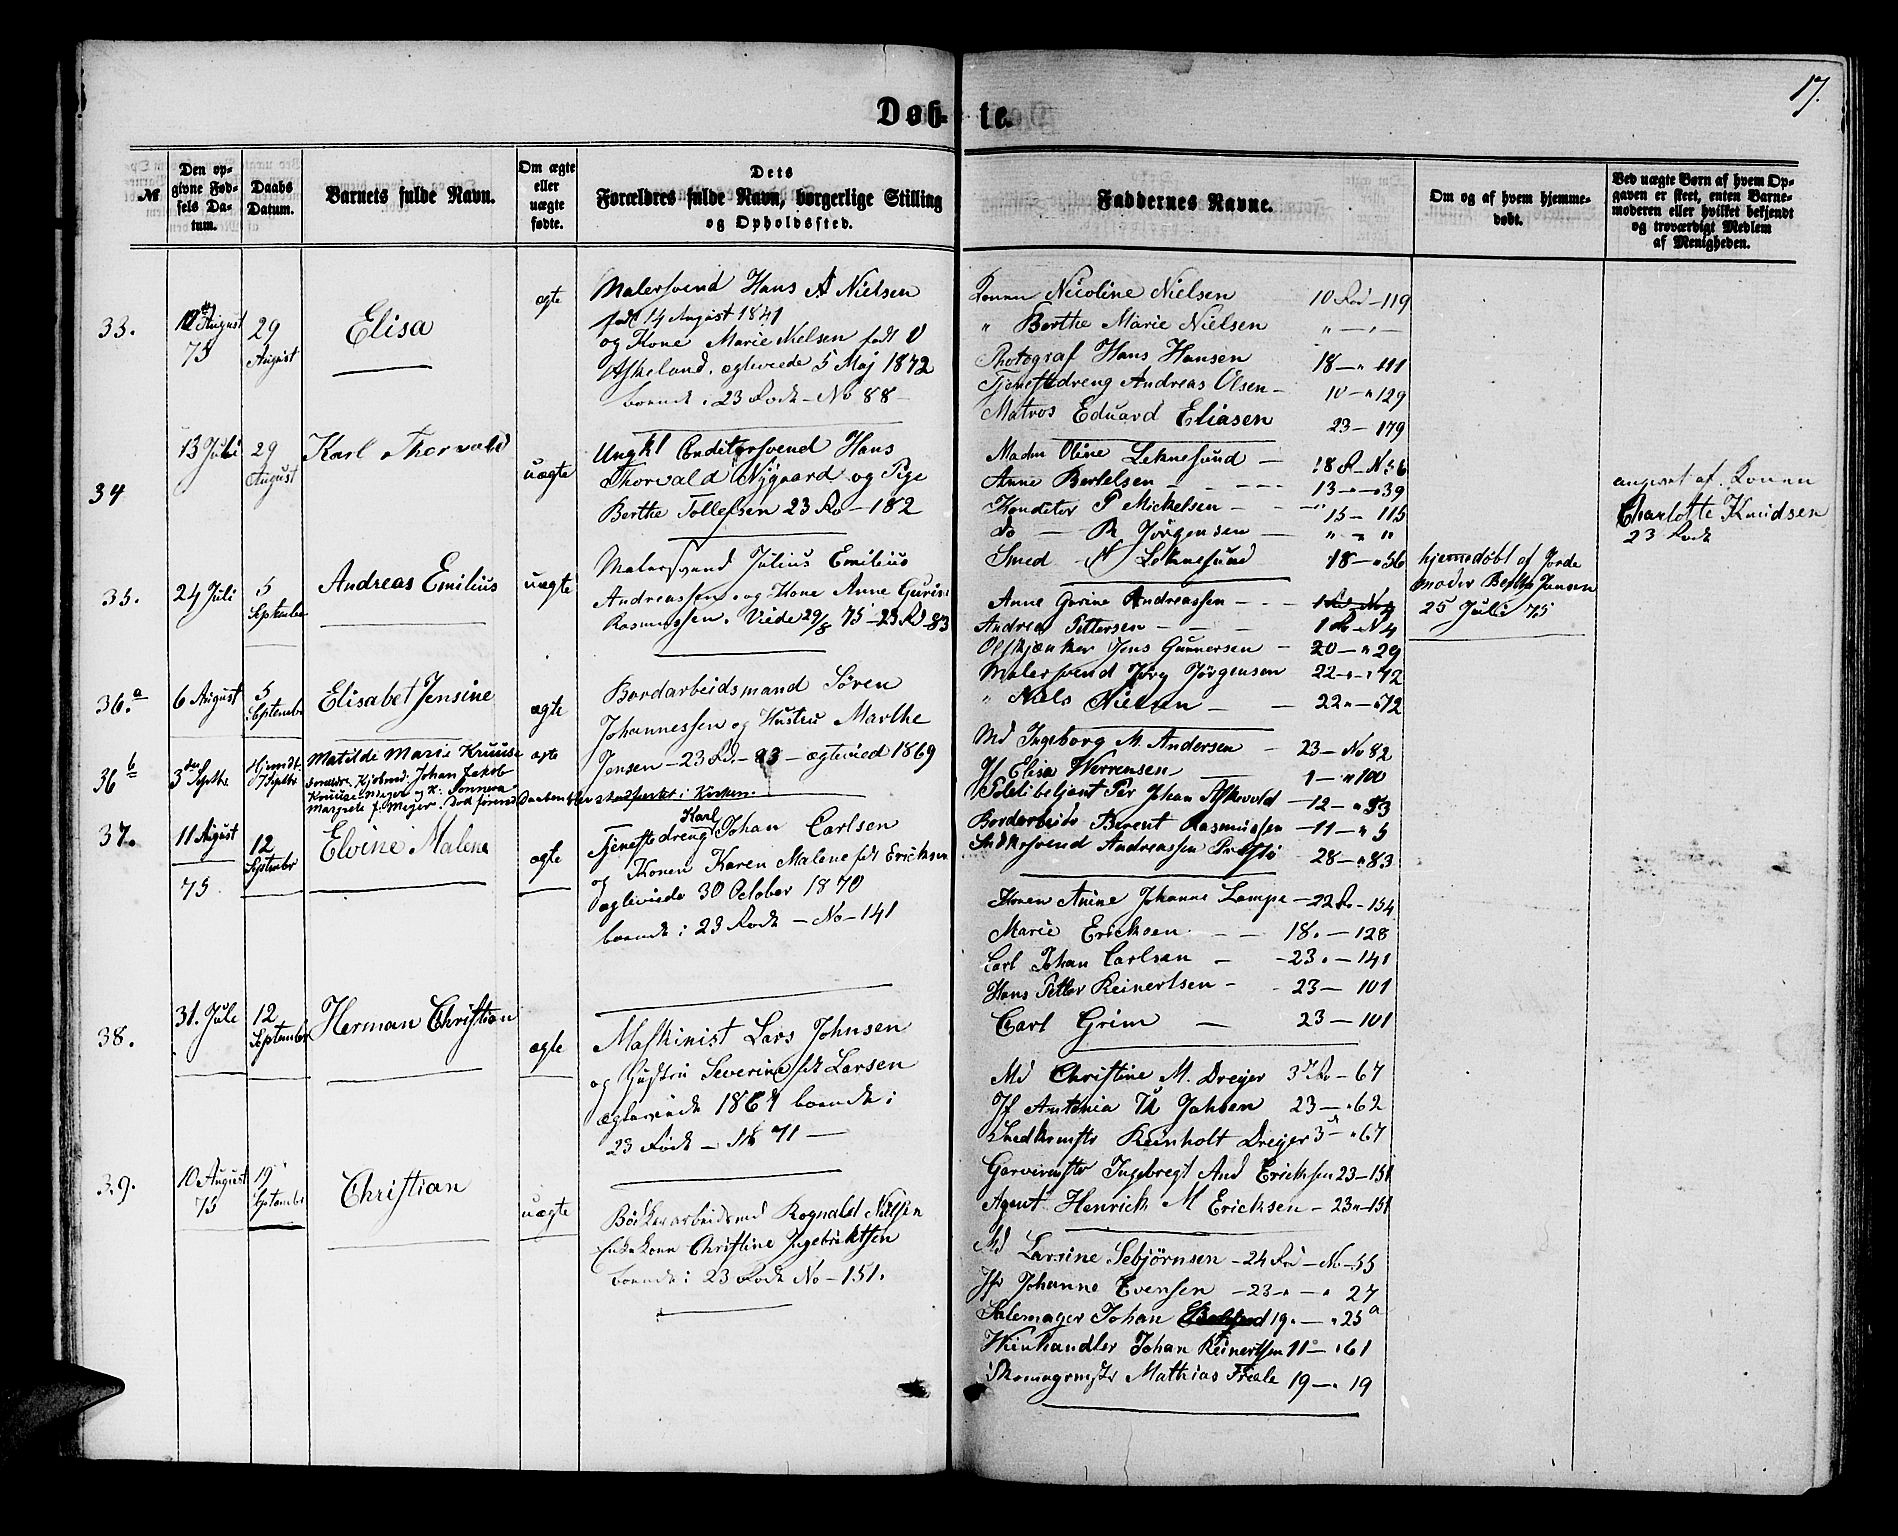 Døb- te.
17.
№
Den opgivne Fødsels Datum.
Daabs Datum.
Barnets fulde Navn.
Om ægte eller uægte fødte.
Dets Forældres fulde Navn, borgerlige Stilling og Opholdssted.
Faddernes Navne.
Om og af hvem hjemmedøbt.
Ved uægte Børn af hvem Opgaven er skeet, enten Barnemoderen eller hvilket bekjendt og troværdigt Medlem af Menigheden.
33.
August 75
29 August
Elisa
ægte
Malersvend Hans A Nielsen
født 14 August 1841
og Kone Marie Nielsen født
Askeland. ægteviede 5 Maj 1872
boende i 23 Rode - No 88 -
Konen Nicoline Nielsen 10 Rod - 119
" Berthe Marie Nielsen " - " -
Photograf Hans Hansen 18 - " 111
Tjenestedreng Andreas Olsen - 10 - " 129
Matros Eduard Eliasen 23 - 179
34
13 Juli
29 August
Karl Thorvald
uægte
Ungkl Conditorsvend Hans
Thorvald Nygaard og Pige
Berthe Tollefsen 23 Ro - 182
Madm Oline Leknesund - 18 R - No 56
Anne Bertelsen - - - 13 - " - 39
Konditor P Mickelsen - - 15 - 115
do - R Jörgensen - " - "
Smed N Leknesund 18 - " 56
angivet af Konen
Charlotte Knudsen
23 Rode
35.
24 Juli
5 September
Andreas Emilius
uægte
Malersvend Julius Emilius
Andreassen og Kone Anne Gurine
Rasmussen. Viede 29/8 75 - 23 R - 83
Anne Gorine Andreassen - - -
Andrea Pettersen - - - 1 R - N 4
Ølskjænker Jens Gunnersen - 20 - " 29
Malersvend Jörg Jörgensen 22 - " - 72
" Niels Nielsen - - 22 " - 72
hjemedøbt af Jorde
moder Berthe Jansen
25 Juli 75
36.a
6 August
5 September
Elisabet Jensine
ægte
Bordarbeidsmand Sören
Johannessen og Hustru Marthe
Jensen - 23 Rd. - 83 - ægteviet 1869
Md Ingeborg M. Andersen - 23 - No 82
Jf Elisa Werrensen - 1 - " 100
Politibetjent Per Johan Askevold - 12 - " 53
Bordarbeids Berent Rasmussen - 11 - " 5
Snedkersvend Andreassen - 28 - " 83
36 b
3die Septbr
Hjemdt 7 Septbr
Matilde Marie Kruuse
ægte
Foreldre Kjøbmd. Johan Jakob
Kruuse Meyer og H:
Margrete f. Meyer. Død førend Daaben blev stadfæstet i Kirken.
37.
11 August 75
12 Septembr
Elvine Malene
ægte
Tjenestedreng Karl Johan Carlsen
og Konen Karen Malene fdt Ericksen
ægteviede 30 October 1870
boende i 23 Rode - No - 141
Konen Anine Johanne Lampe - 22 Ro - 154
Marie Ericksen - - 18. - 128
Carl Johan Carlsen - - 23. - 141
Hans Petter Reinertsen - - 23 - 101
Carl Grim - 23 - 101
38.
31. Jule
12 September
Herman Christian
ægte
Maskinist Lars Johnsen
og Hustru Severine fdt Larsen
ægteviede 1867 boende i
23 Rode - No 71 -
Md Christine M. Dreyer 3d Ro - 67
Jf Antonia Jahsen 23 - " 62
Snedkermstr Reinholt Dreyer 3d - " 67
Garvermstr Ingebregt And Ericksen 23 - 151
Agent Henrick M Ericksen - 23 " - 151
39.
10 August 75
19 September
Christian
uægte
Bödkerarbeidsmd Rognald Nielsen
Enkekone Christine Ingebriktsen
boende i 23 Rode No - 151.
Md Larsine Sebjörnsen - 24 Rd - No - 55
Jfr Johanne Evensen - 23 " - " 27
Salemager Johan 19. - " 25 a
Viinhandler Johan Reinertsen 11 - " 61
Skomagermstr Mathias Friele 19 - " 19